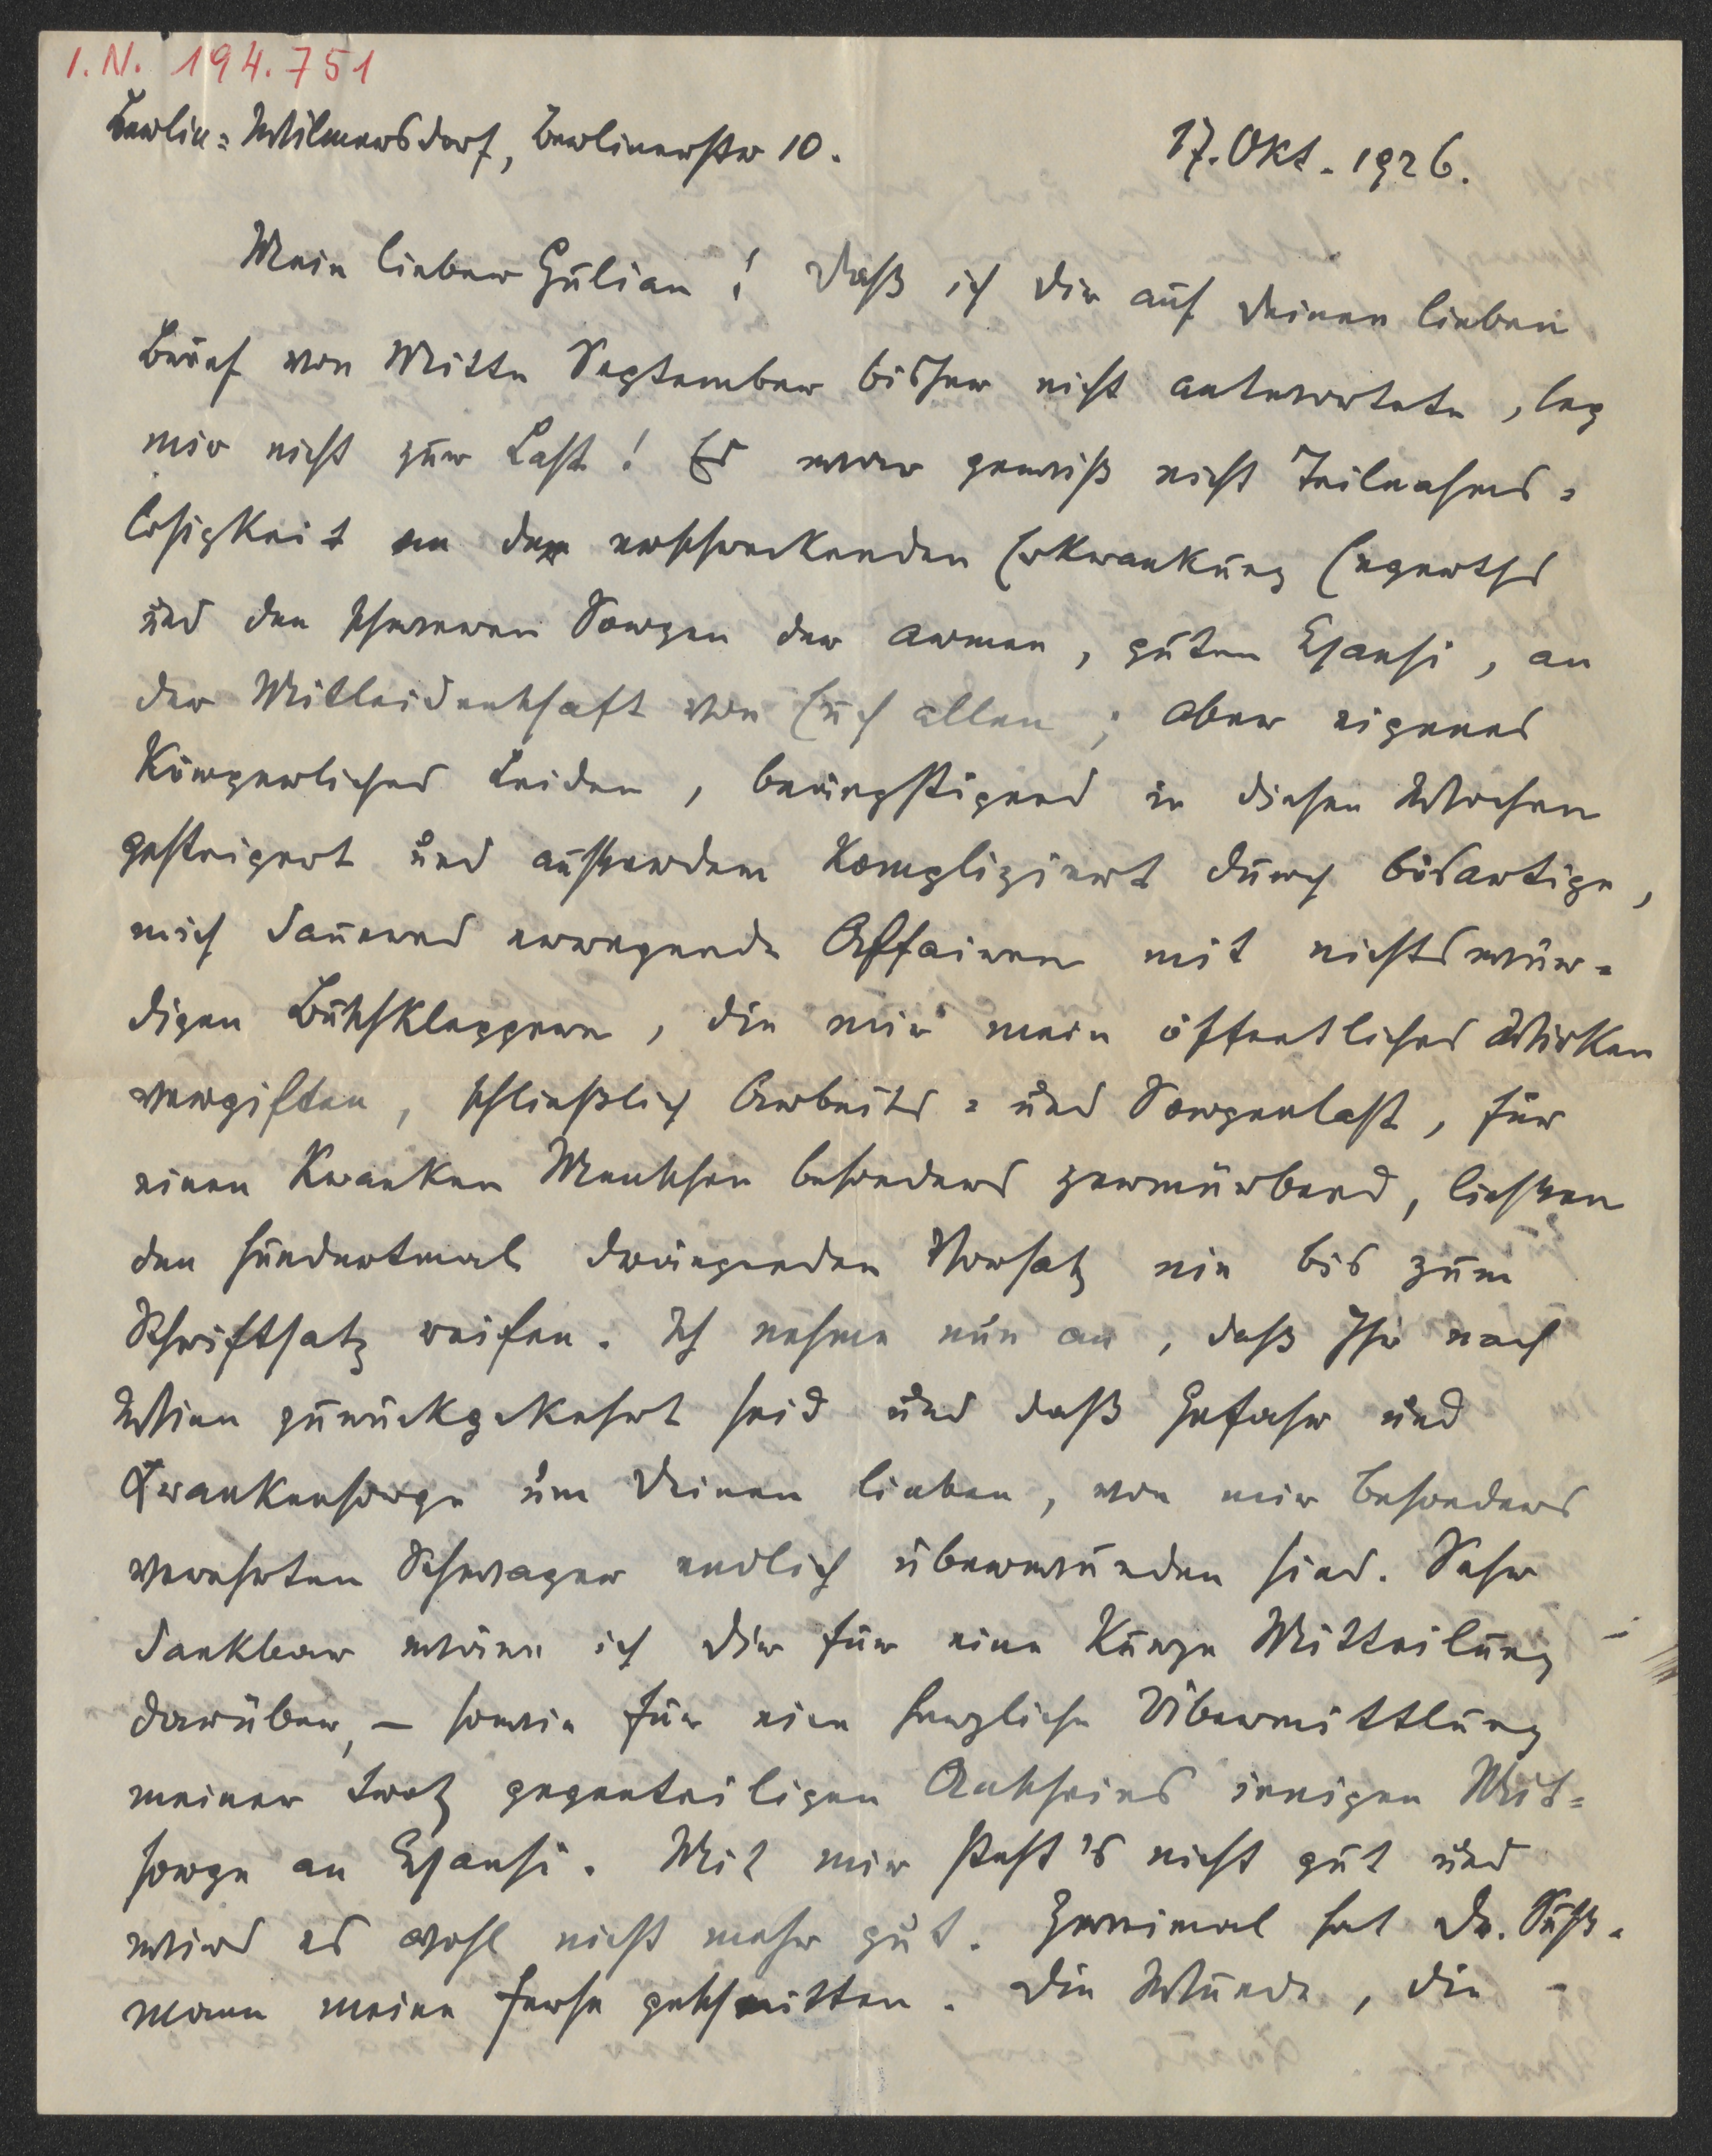 I.N. 194.751
Berlin-Wilmersdorf, Berlinerstr 10. 17. Okt. 1926.
Mein lieber Julian! Daß ich Dir auf Deinen lieben
Brief von Mitte September bisher nicht antwortete, leg
mir nicht zur Last! Es war gewiß nicht Teilnahms-
losigkeit an der erschreckenden Erkrankung Engerths
und den schweren Sorgen der armen, guten Hansi, an
der Mitleidenschaft von Euch allen; aber eigenes
körperliches Leiden, beängstigend in diesen Wochen
gesteigert und ausserdem kompliziert durch bösartige,
mich dauernd erregende Affairen mit nichtswür-
digen Buschkleppern, die mir mein öffentliches Wirken
vergiften, schließlich Arbeits- und Sorgenlast, für
einen kranken Menschen besonders zermürbend, liessen
den hundertmal drängenden Vorsatz nie bis zum
Schriftsatz reifen. Ich nehme nun an, daß Ihr nach
Wien zurückgekehrt seid und daß Gefahr und
Krankensorge um Deinen lieben, von mir besonders
verehrten Schwager endlich überwunden sind. Sehr
dankbar wäre ich Dir für eine kurze Mitteilung
darüber, – sowie für eine herzliche Übermittlung
meiner trotz gegenteiligen Anscheins innigen Mit-
sorge an Hansi. Mit mir steht's nicht gut und
wird es wohl nicht mehr gut. Zweimal hat Dr. Suß-
mann meine Ferse geschnitten. Die Wunde, die